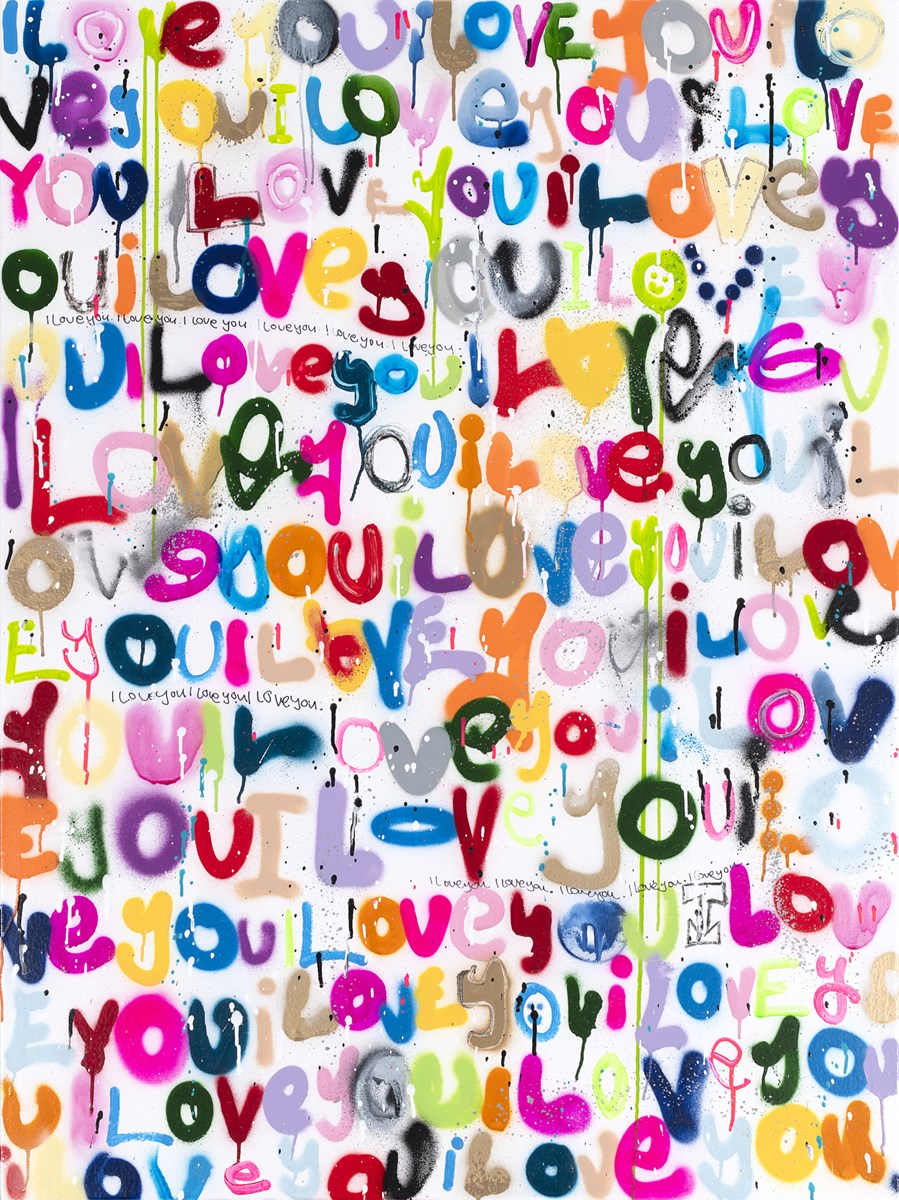 ILoveyouiLovEYouiLo
veyouILoveyouiLOVE
YOUiLoveyouiLovey
ouiLoveyouILoVEy
I love you. I love you. I love you. I love you. I love you. I love you.
ouiLoveyouiLoveyou
ILoveyouiLoveyouiL
oveyouiLoveyouiLov
EyouILoveyouiLove
I Love you I Love you I Love you.
youiLoveyouiLov
EyouILoveyouiLo
I love you. I love you. I love you. I love you. I love you
veyouiLoveyouILov
EYouiLovEyouiLovEyo
uiLoveyouiLoveyou
iLoveyouiLoveyou